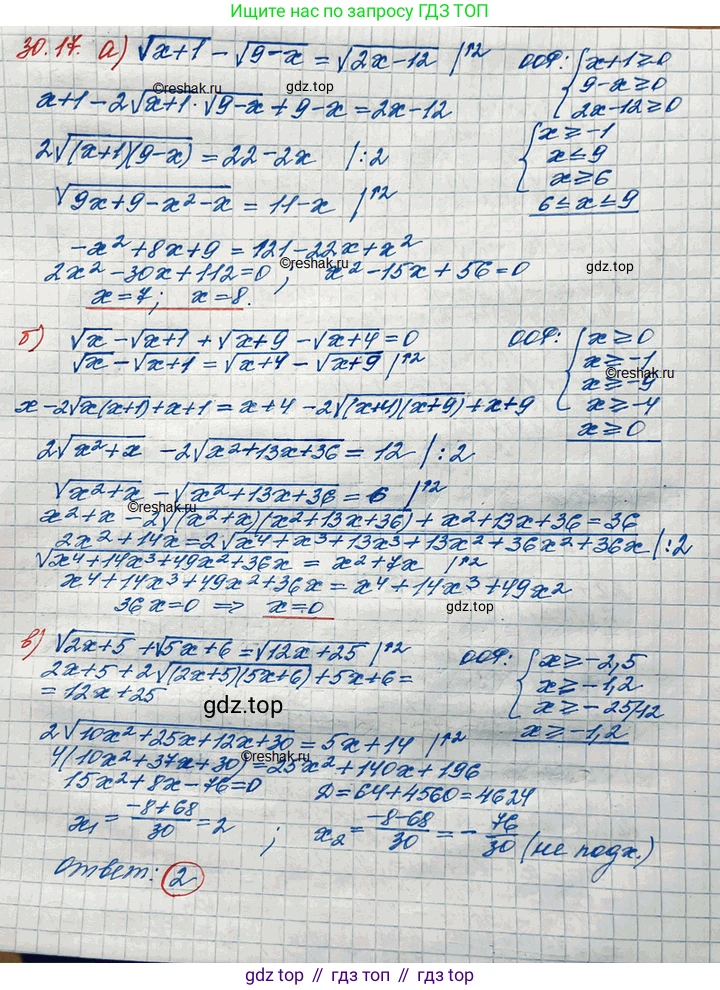 Больше решений по запросу ГДЗ ТОП
30.17. а) √(x+1) - √(9-x) = √(2x-12) |↑2 ООФ: { x+1≥0
9-x≥0
2x-12≥0
x+1-2√(x+1)·√(9-x)+9-x=2x-12
©reshak.ru
{ x≥-1
x≤9
x≥6
2√((x+1)(9-x)) = 22-2x |:2
6≤x≤9
√(9x+9-x²-x) = 11-x |↑2
-x²+8x+9=121-22x+x²
2x²-30x+112=0 ; x²-15x+56=0
©reshak.ru
gdz top
x=7; x=8.
б) √x - √(x+1) + √(x+9) - √(x+4) = 0 ООФ: { x≥0
x≥-1
x≥-9
x≥-4
√x - √(x+1) = √(x+4) - √(x+9) |↑2
©reshak.ru
x-2√(x(x+1))+x+1=x+4-2√((x+4)(x+9))+x+9
x≥0
2√(x²+x) - 2√(x²+13x+36) = 12 |:2
√(x²+x) - √(x²+13x+36) = 6 |↑2
©reshak.ru
x²+x-2√((x²+x)(x²+13x+36))+x²+13x+36=36
2x²+14x=2√(x⁴+x³+13x³+13x²+36x²+36x) |:2
√(x⁴+14x³+49x²+36x) = x²+7x |↑2
x⁴+14x³+49x²+36x=x⁴+14x³+49x²
36x=0 => x=0
gdz top
в) √(2x+5) + √(5x+6) = √(12x+25) |↑2 ООФ: { x≥-2,5
x≥-1,2
x≥-25/12
2x+5+2√((2x+5)(5x+6))+5x+6=
=12x+25
gdz top
x≥-1,2
2√(10x²+25x+12x+30) = 5x+14 |↑2
4(10x²+37x+30)=25x²+140x+196
15x²+8x-76=0 D=64+4560=4624
x₁=(-8+68)/30=2 ; x₂=(-8-68)/30=-76/30 (не подх.)
Ответ: 2
gdz top // гдз топ // gdz.top // гдз.топ